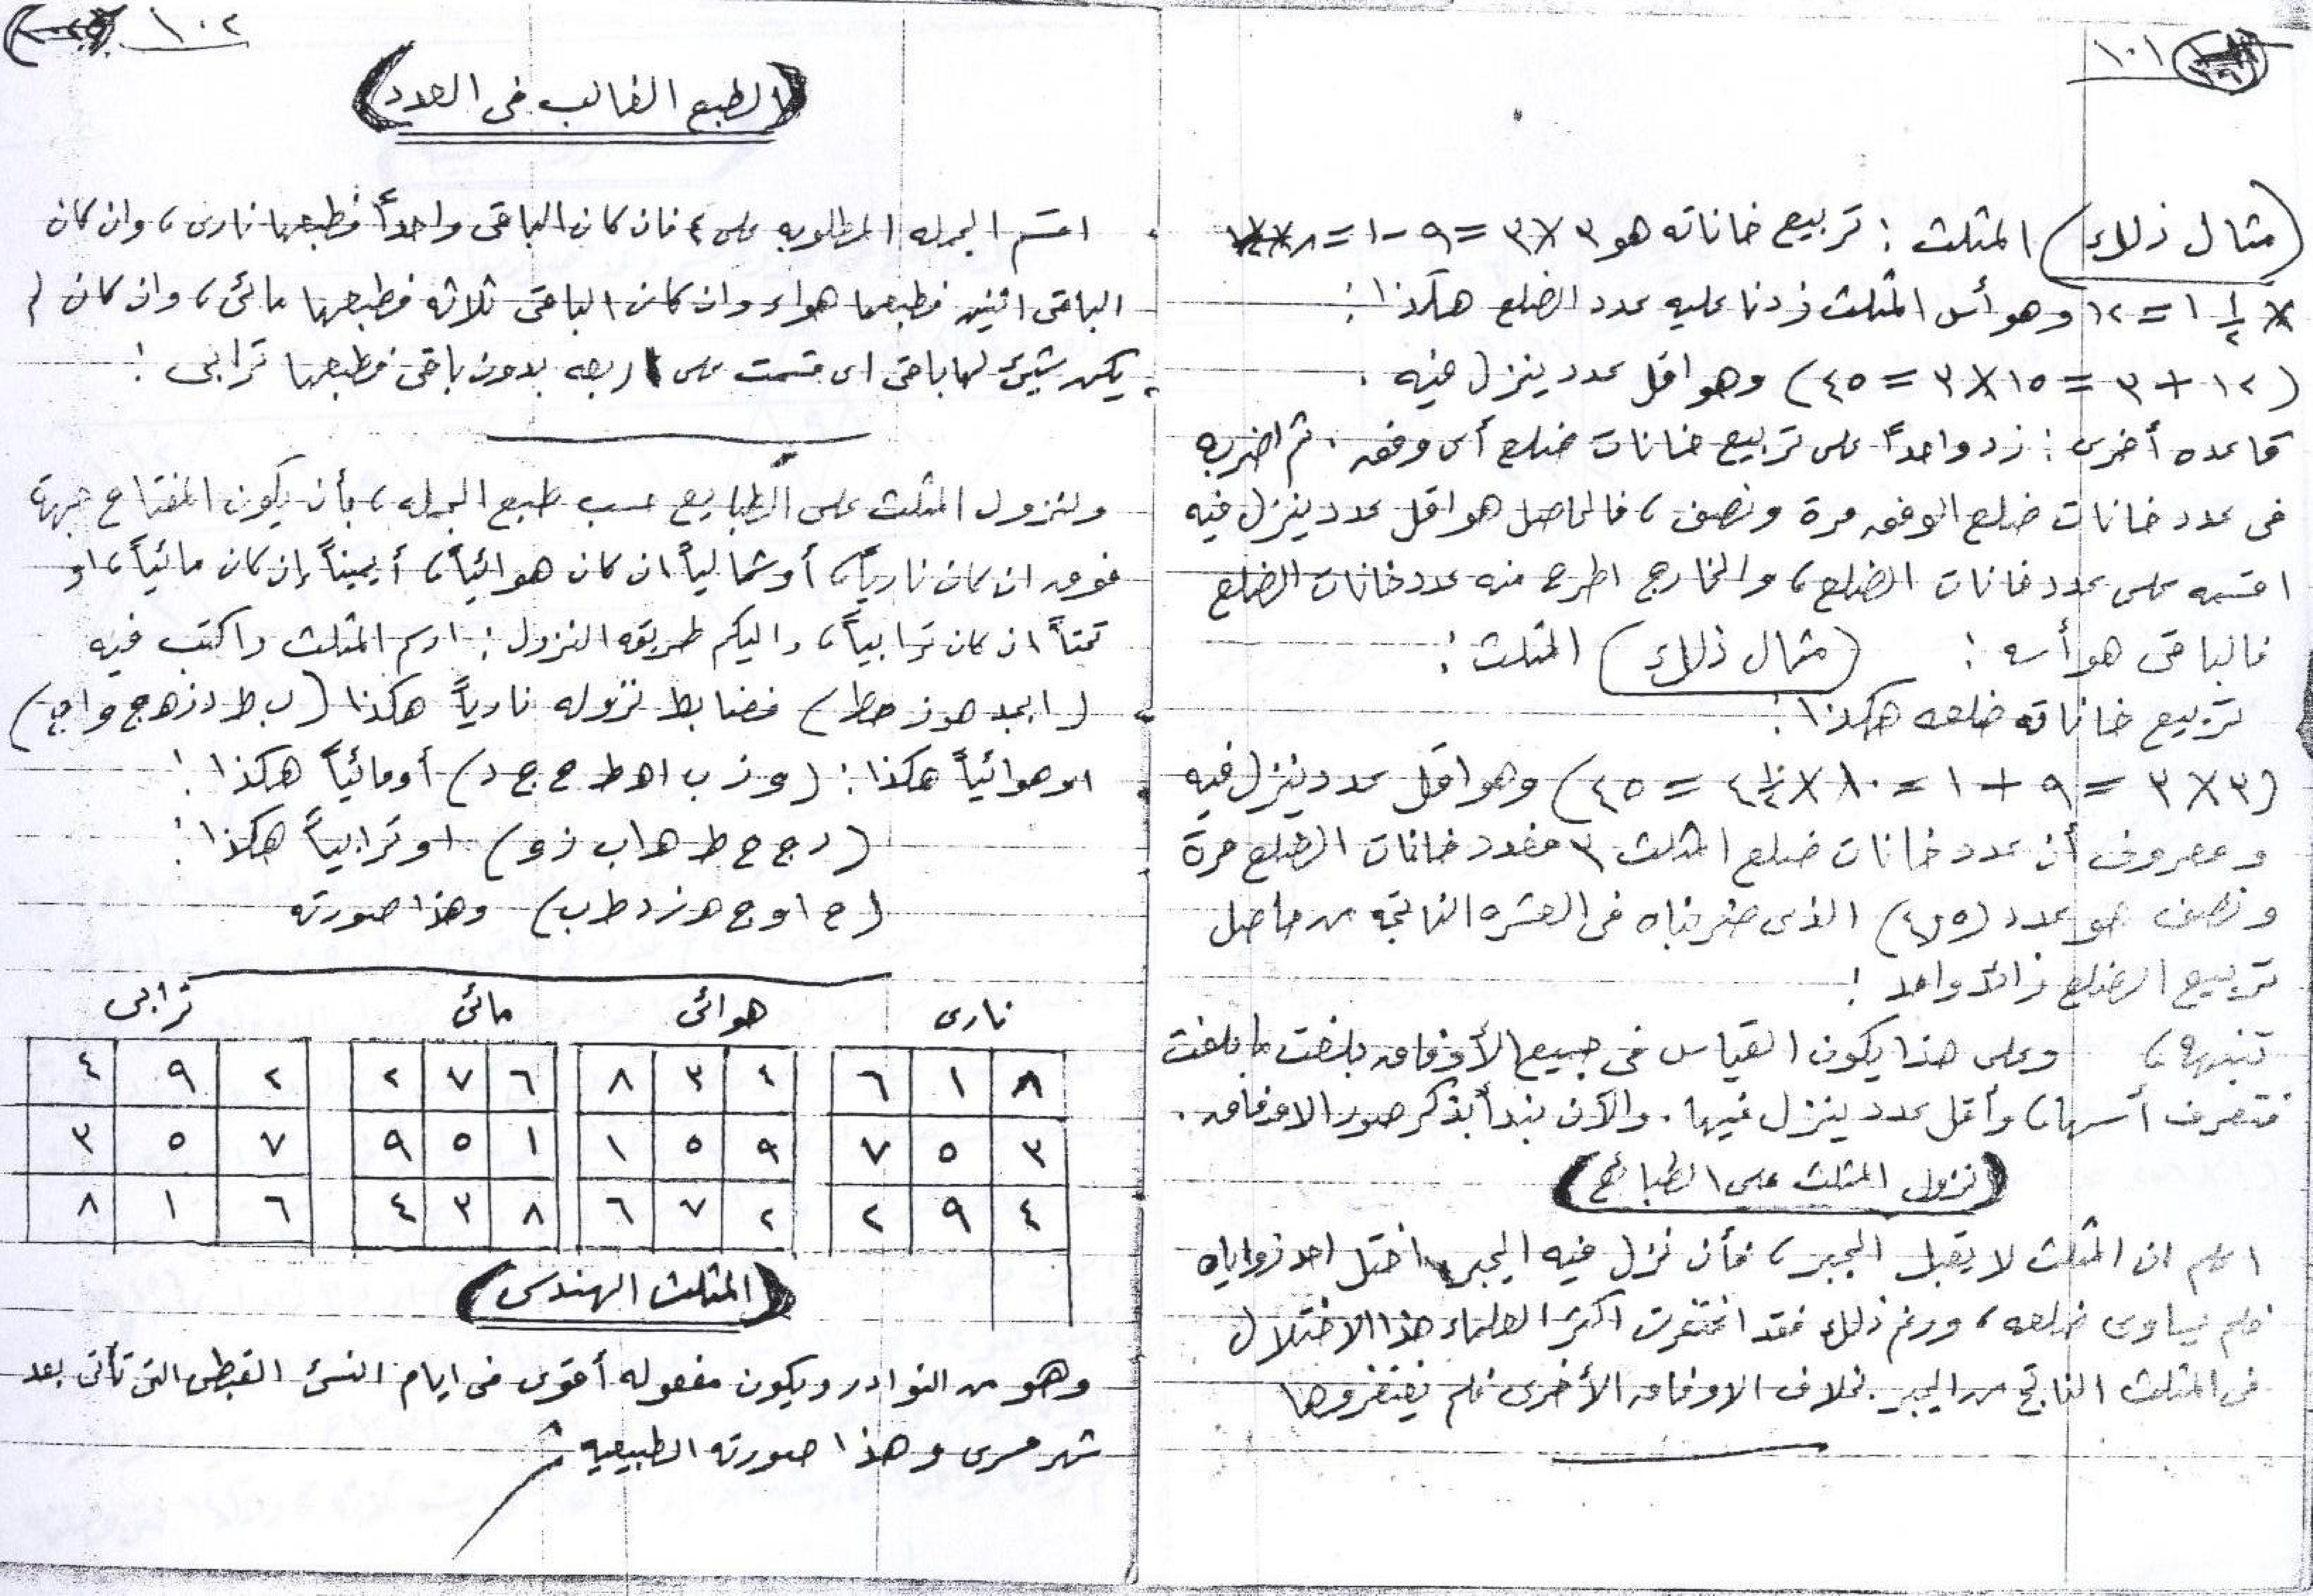 ١٠١
(مثال ذلك) المثلث : تربيع خاناته هو ٣×٣ = ٩ - ١ = ٨
× ١ ١/٢ = ١٢ وهو أس المثلث زدنا عليه عدد الضلع هكذا :
(١٢ + ٣ = ١٥ × ٣ = ٤٥) وهو اقل عدد ينزل فيه .
قاعده أخرى : زد واحداً على تربيع خانات ضلع أى وفق . ثم اضربه
فى عدد خانات ضلع الوفق مرة ونصف ، فالحاصل هو اقل عدد ينزل فيه
اقسمه على عدد خانات الضلع ، والخارج اطرح منه عدد خانات الضلع
فالباقى هو أسه : (مثال ذلك) المثلث :
تربيع خاناته ضلعه هكذا :
(٣×٣ = ٩ + ١ = ١٠ × ٤ ١/٢ = ٤٥) وهو اقل عدد ينزل فيه
ومعروف أن عدد خانات ضلع المثلث ٣ فعدد خانات الضلع مرة
ونصف هو عدد (٤,٥) الذى ضربناه فى العشره الناتجة من حاصل
تربيع الضلع زائد واحد !
تنبيه ، وعلى هذا يكون القياس فى جميع الأوفاق بلغت ما بلغت
فتعرف أسها ، وأقل عدد ينزل فيها . والآن نبدأ بذكر صور الاوفاق .
(نزول المثلث على الطبائع)
اعلم ان المثلث لا يقبل الجبر ، فأن نزل فيه الجبر اختل احد زواياه
فلم يساوى ضلعه ، ورغم ذلك فقد اغتفرت اكثر العلماء هذا الاختلال
فى المثلث الناتج من الجبر . بخلاف الاوفاق الأخرى فلم يغتفروها
١٠٢
(الطبع الغالب فى العدد)
اقسم الجمله المطلوبه على ٤ فان كان الباقى واحداً فطبعها نارى ، وان كان
الباقى اثنين فطبعها هواء وان كان الباقى ثلاثه فطبعها مائى ، وان كان لم
يكن شيئ لها باقى اى قسمت على اربعه بدون باقى فطبعها ترابى !
ولنزول المثلث على الطبايع حسب طبع الجمله ، بأن يكون المفتاح جهة
فوق ان كان نارياً ، أو شمالياً ان كان هوائياً ، أ يميناً إن كان مائياً ، او
تحتاً ان كان ترابياً ، واليكم طريقه النزول : ارسم المثلث واكتب فيه
(ابجد هوز حط) فضابط نزوله نارياً هكذا (ب ط د ز ه ج و ا ح)
او هوائياً هكذا : (و ز ب ا ه ط ح ج د) أو مائياً هكذا !
(د ج ح ط ه ا ب ز و) او ترابياً هكذا :
(ح ا و ج ه ز د ط ب) وهذا صورته
نارى هوائى مائى ترابى
٨ ١ ٦ ٤ ٣ ٨ ٦ ٧ ٢ ٢ ٩ ٤
٣ ٥ ٧ ٩ ٥ ١ ١ ٥ ٩ ٧ ٥ ٣
٤ ٩ ٢ ٢ ٧ ٦ ٨ ٣ ٤ ٦ ١ ٨
(المثلث الهندسى)
وهو من النوادر ويكون مفعوله أقوى فى ايام النسئ القبطى التى تأتى بعد
شهر مسرى وهذا صورته الطبيعيه